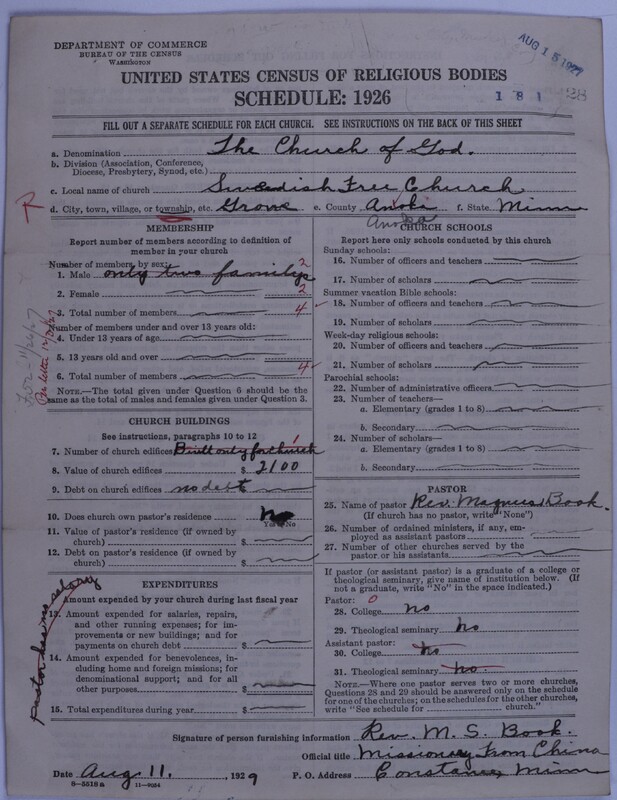 DEPARTMENT OF COMMERCE
BUREAU OF THE CENSUS
WASHINGTON
AUG 15 1927
UNITED STATES CENSUS OF RELIGIOUS BODIES
SCHEDULE: 1926
1 8 1
FILL OUT A SEPARATE SCHEDULE FOR EACH CHURCH. SEE INSTRUCTIONS ON THE BACK OF THIS SHEET
a. Denomination The Church of God.
b. Division (Association, Conference,
Diocese, Presbytery, Synod, etc.)
c. Local name of church Swedish Free Church
R d. City, town, village, or township, etc. Grove e. County Anoka f. State Minn
Anoka
MEMBERSHIP
Report number of members according to definition of
member in your church
Number of members, by sex:
1. Male only two familys 2
2. Female 2
3. Total number of members 4
Number of members under and over 13 years old:
4. Under 13 years of age
5. 13 years old and over
6. Total number of members 4
NOTE.—The total given under Question 6 should be the
same as the total of males and females given under Question 3.
CHURCH BUILDINGS
See instructions, paragraphs 10 to 12
7. Number of church edifices Built only for church 1
8. Value of church edifices $ 2100
9. Debt on church edifices no debt
10. Does church own pastor's residence No
Yes or No
11. Value of pastor's residence (if owned by
church) $
12. Debt on pastor's residence (if owned by
church) $
EXPENDITURES
Amount expended by your church during last fiscal year
13. Amount expended for salaries, repairs,
and other running expenses; for im-
provements or new buildings; and for
payments on church debt $
14. Amount expended for benevolences, in-
cluding home and foreign missions; for
denominational support; and for all
other purposes $
15. Total expenditures during year $
Pastor has no salary
CHURCH SCHOOLS
Report here only schools conducted by this church
Sunday schools:
16. Number of officers and teachers
17. Number of scholars
Summer vacation Bible schools:
18. Number of officers and teachers
19. Number of scholars
Week-day religious schools:
20. Number of officers and teachers
21. Number of scholars
Parochial schools:
22. Number of administrative officers
23. Number of teachers—
a. Elementary (grades 1 to 8)
b. Secondary
24. Number of scholars—
a. Elementary (grades 1 to 8)
b. Secondary
PASTOR
25. Name of pastor Rev. Magnus Book.
(If church has no pastor, write "None")
26. Number of ordained ministers, if any, em-
ployed as assistant pastors
27. Number of other churches served by the
pastor or his assistants
If pastor (or assistant pastor) is a graduate of a college or
theological seminary, give name of institution below. (If
not a graduate, write "No" in the space indicated.)
Pastor: 0
28. College no
29. Theological seminary no
Assistant pastor:
30. College no
31. Theological seminary no.
NOTE.—Where one pastor serves two or more churches,
Questions 28 and 29 should be answered only on the schedule
for one of the churches; on the schedules for the other churches,
write "See schedule for church."
Signature of person furnishing information Rev. M. S. Book.
Official title Missionary From China
Date Aug 11., 1929 P. O. Address Constance, Minn
8—5518a 11—9024